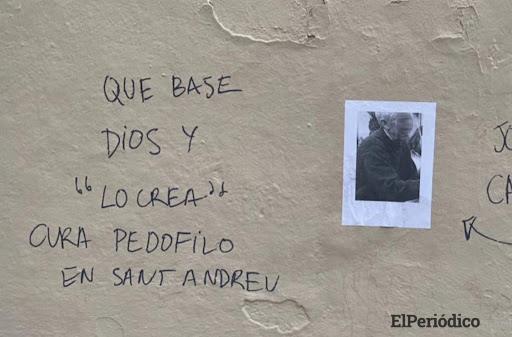 QUE BASE
DIOS Y
"LO CREA"
CURA PEDOFILO
EN SANT ANDREU
JO
CA
ElPeriódico